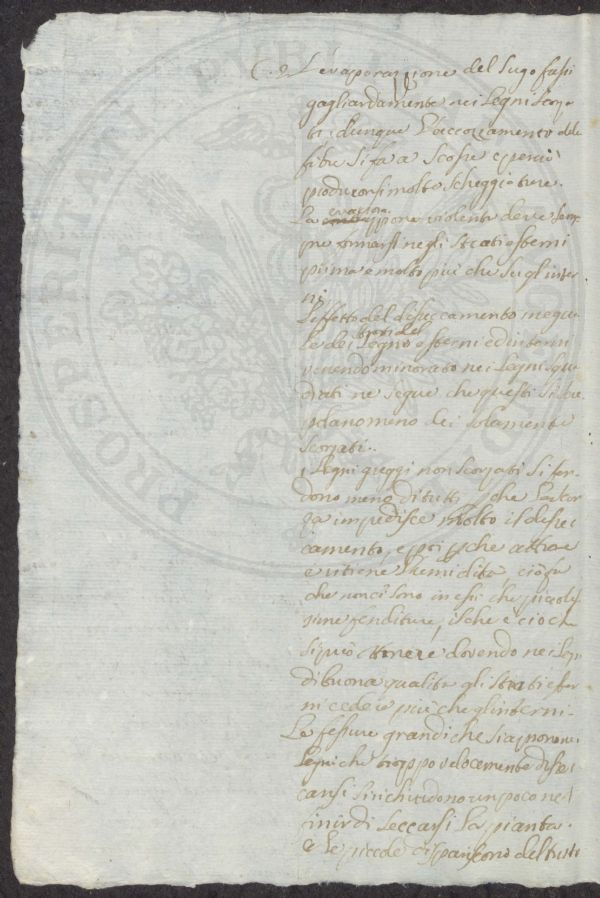 L'evaporazione del Sugo fassi
gagliardamente nei Legni Scorza
ti, dunque l'accorciamento delle
fibre si fa a Scosse e perciò
produconsi molto Scheggiature.
La evazione violenta deve sem
pre formarsi negli Strati esterni
prima e molto più che sugl'inter
ni.
L'effetto del disseccamento inegua
le dei strati del Legno esterni ed interni
venendo minorato nei Legni squa
drati ne segue che questi si
meno dei solamente
Scorzati.
i Legni greggi non Scorzati si fen
dono meno di tutti che la Scor
za impedisce molto il dissec
camento, e poi che attrae
e ritiene l'umidità, ciò fa
che non ci sono in essi che piccolis
sime fenditure, il che è ciò che
si può ottenere dovendo nei Legni
di buona qualità gli Strati ester
ni cedere più che gl'interni.
Le fessure grandi che si aprono nei
Legni che troppo velocemente dissec
cansi si richiudono un poco nel
finir di Seccarsi la pianta.
e le piccole dispariscono del tutto
PROSPERITATI PUBLICAE